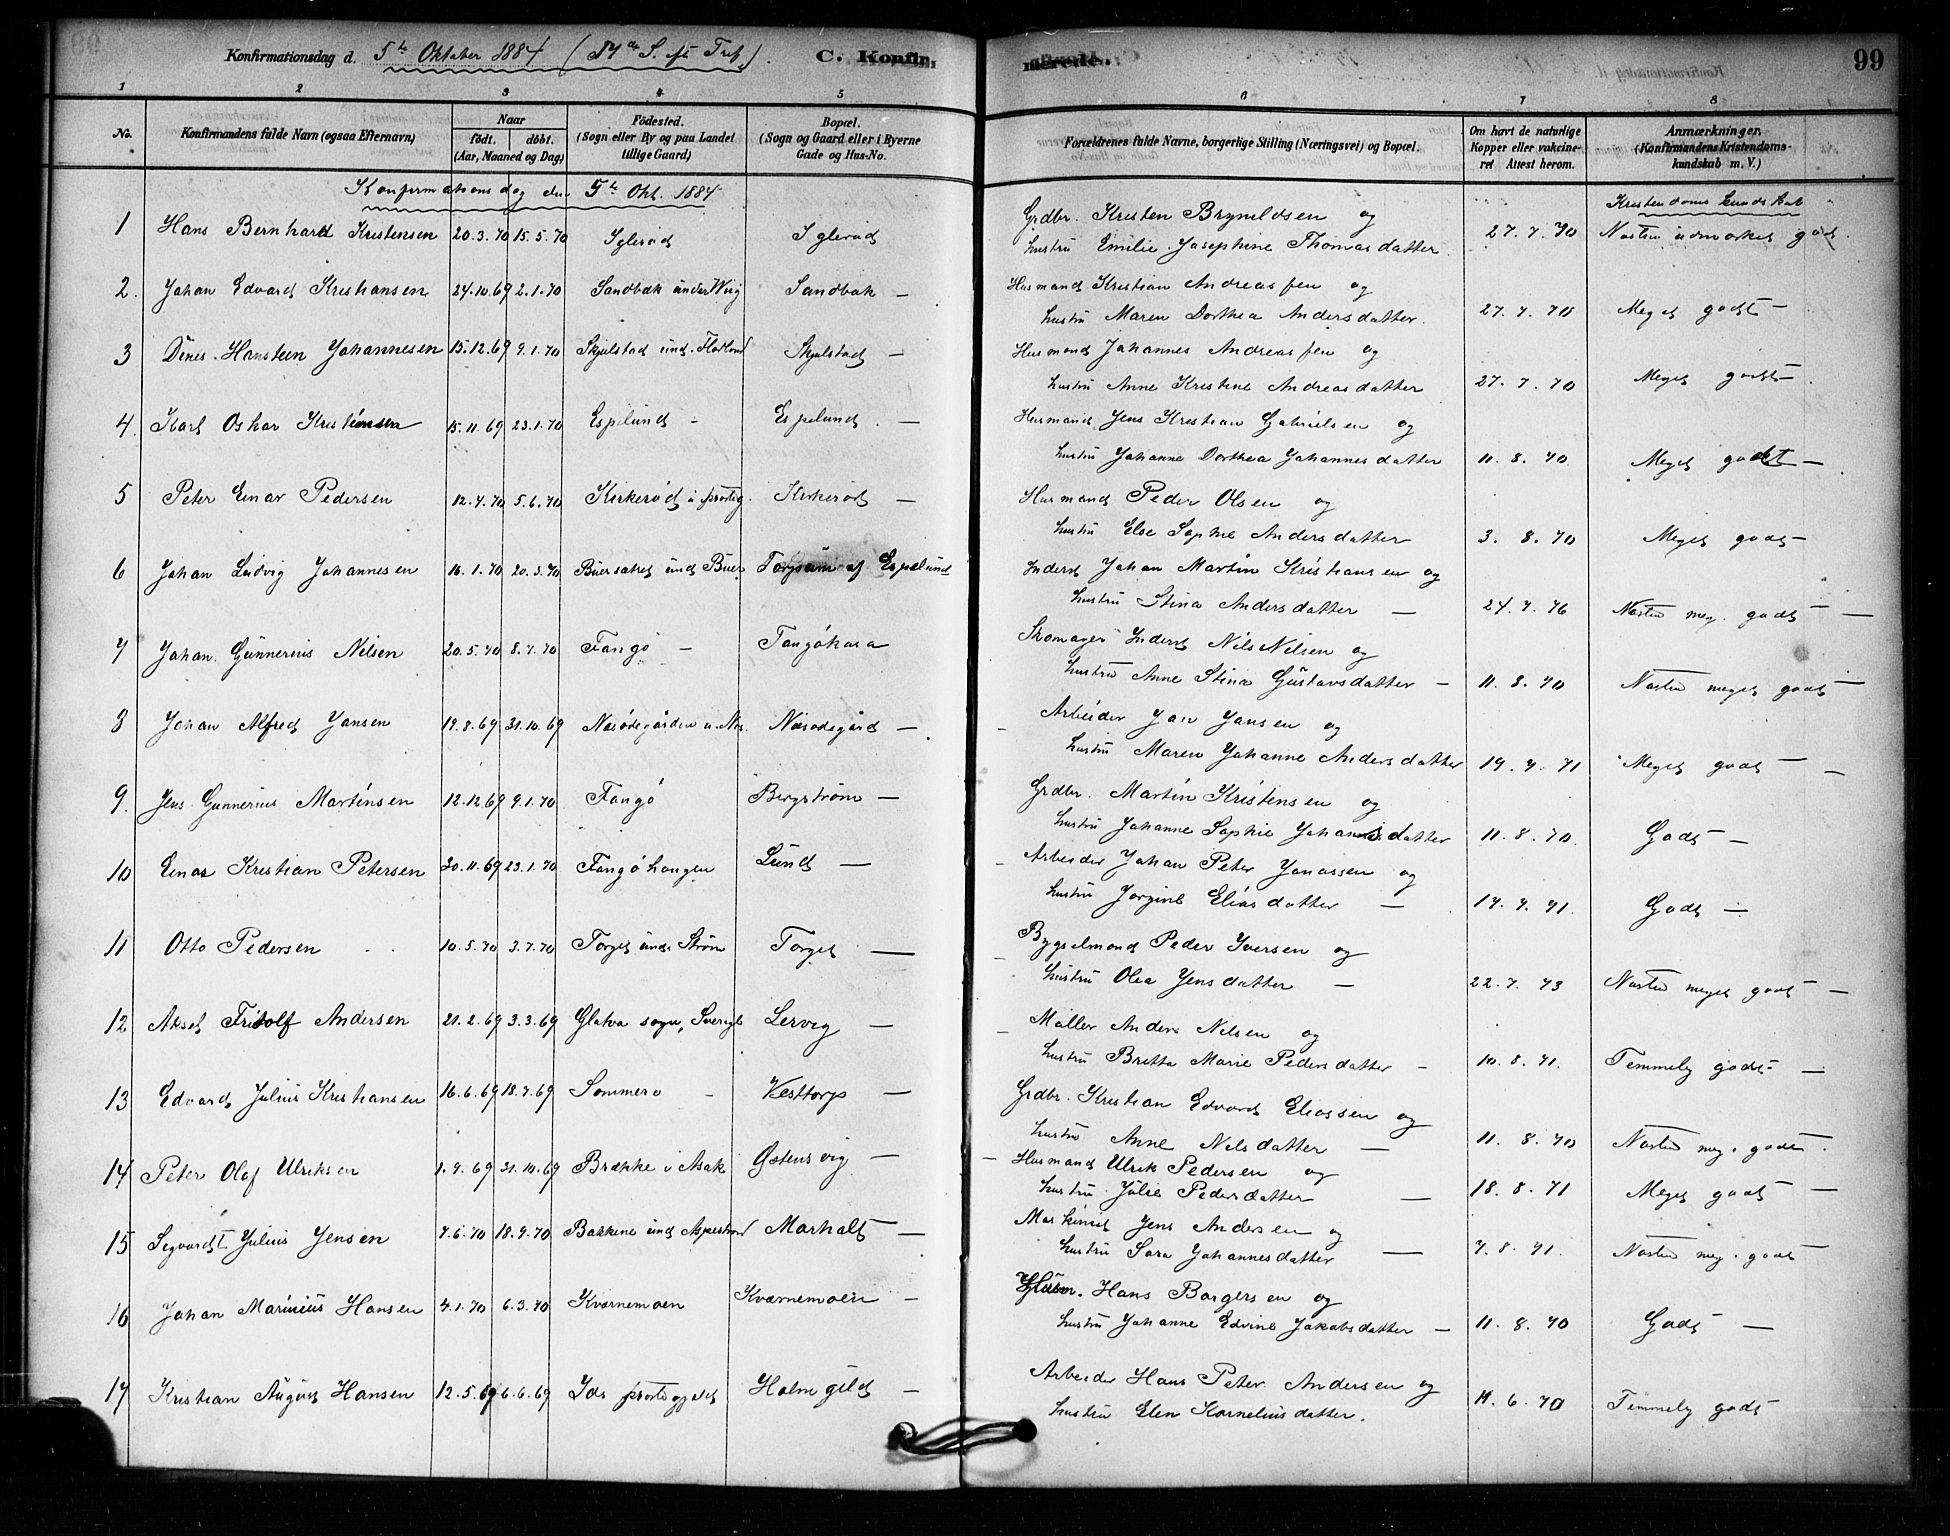 Konfirmationsdag d. 5te Oktober 1884 (17de S. eft. Tref.) C. Konfir- merede. 99
1 2 3 4 5 6 7 8
No. Konfirmandens fulde Navn (ogsaa Efternavn) Naar født. døbt. (Aar, Maaned og Dag) Fødested. (Sogn eller By og paa Landet tillige Gaard) Bopæl. (Sogn og Gaard eller i Byerne Gade og Hus-No. Forældrenes fulde Navne, borgerlige Stilling (Næringsvei) og Bopæl. Om havt de naturlige Kopper eller vakcineret Attest herom. Anmærkninger. (Konfirmandens Kristendomskundskab m. V.)
Konfirmationsdag den 5te Okt. 1884 Kristendoms kundskab
1 Hans Bernhard Kristensen 20.3.70 15.5.70 Iglerød Iglerød Grdbr. Kristen Brynildsen og
hustru Emilie Josephine Thomasdatter 27.7.70 Næsten udmærket godt.
2. Johan Edvard Kristiansen 24.10.69 2.1.70 Sandbæk under Wiig Sandbæk — Husmand Kristian Andreassen og
hustru Maren Dorthea Andersdatter. 27.7.70 Meget godt —
3 Dines Hansteen Johannesen 15.12.69 9.1.70 Skjelstad und. Skjelstad — Husmand Johannes Andreassen og
hustru Anne Kristine Andreasdatter 27.7.70 Meget godt
4. Karl Oskar 15.11.69 23.1.70 Espelund - Espelund. — Husmand Jens Kristian Gabrielsen og
hustru Johanne Dorthea Johannesdatter 11.8.70 Meget godt —
5 Peter Einar Pedersen 12.4.70 5.6.70 Kirkerød i Kirkerød — Husmand Peder Olsen og
hustru Else Sophie Andersdatter 3.8.70 Meget godt
6 Johan Ludvig Johannesen 16.1.70 20.3.70 Buersætret und Buer Torpum af Espelund Inderst Johan Martin Kristiansen og
hustru Stina Andersdatter — 24.7.76 Næsten meg. godt —
7 Johan Gunnerius Nilsen 20.5.70 8.7.70 Fangø - Tangøkasa Skomager Inderst Nils Nilsen og
hustru Anne Stina Gustavsdatter — 11.8.70 Næsten meget godt —
8 Johan Alfred Jansen 19.8.69 31.10.69 Næsødegården u. Næs. Næsødegård — Arbeider Jan Jansen og
hustru Maren Johanne Andersdatter 19.7.71 Meget godt —
9. Jens Gunnerius Martinsen 12.12.69 9.1.70 Fangø Bergstrøm — Grdbr. Martin Kristensen og
hustru Johanne Sophie Johansdatter 11.8.70. Godt —
10 Einar Kristian Petersen 30.11.69 23.1.70 Fangø haugen Lund — Arbeider Johan Peter Jonassen og
hustru Jorgine Eliasdatter — 17.7.71. Godt —
11 Otto Pedersen 10.5.70 3.7.70 Torget under Strøm Torget — Bygselmand Peder Iversen og
hustru Olea Jensdatter — 22.7.73 Næsten meget godt —
12 Aksel Fritolf Andersen 21.2.69 3.3.69 Glatva sogn, Sverige Lervig — Møller Anders Nilsen og
hustru Britta Marie Pedersdatter - 10.8.71. Temmelig godt —
13 Edvard Julius Kristiansen 16.6.69 18.7.69 Sommero - Vesttorp — Grdbr. Kristian Edvard Eliassen og
hustru Anne Nilsdatter — 11.8.70 Næsten meg. godt.
14 Peter Olaf Ulriksen 1.9.69 31.10.69 Brække i Asak Østensvig — Husmand Ulrik Pedersen og
hustru Julie Pedersdatter — 18.8.71 Meget godt —
15 Segvardt Julius Jensen 7.6.70 18.9.70 Bakkene und Aspestrand Marhalt — Maskinist Jens Andersen og
hustru Sara Johannesdatter — 7.8.71. Næsten meg. godt —
16 Johan Marinius Hansen 4.1.70 6.3.70 Kværnemoen Kværnemoen - Husm. Hans Borgersen og
hustru Johanne Edvine Jakobsdatter — 11.8.70 Godt —
17 Kristian August Hansen 12.5.69 6.6.69 Ids præstegjeld Holmgild — Arbeider Hans Peter Andersen og
hustru Elen Kornelius datter. 11.6.70 Temmelig godt